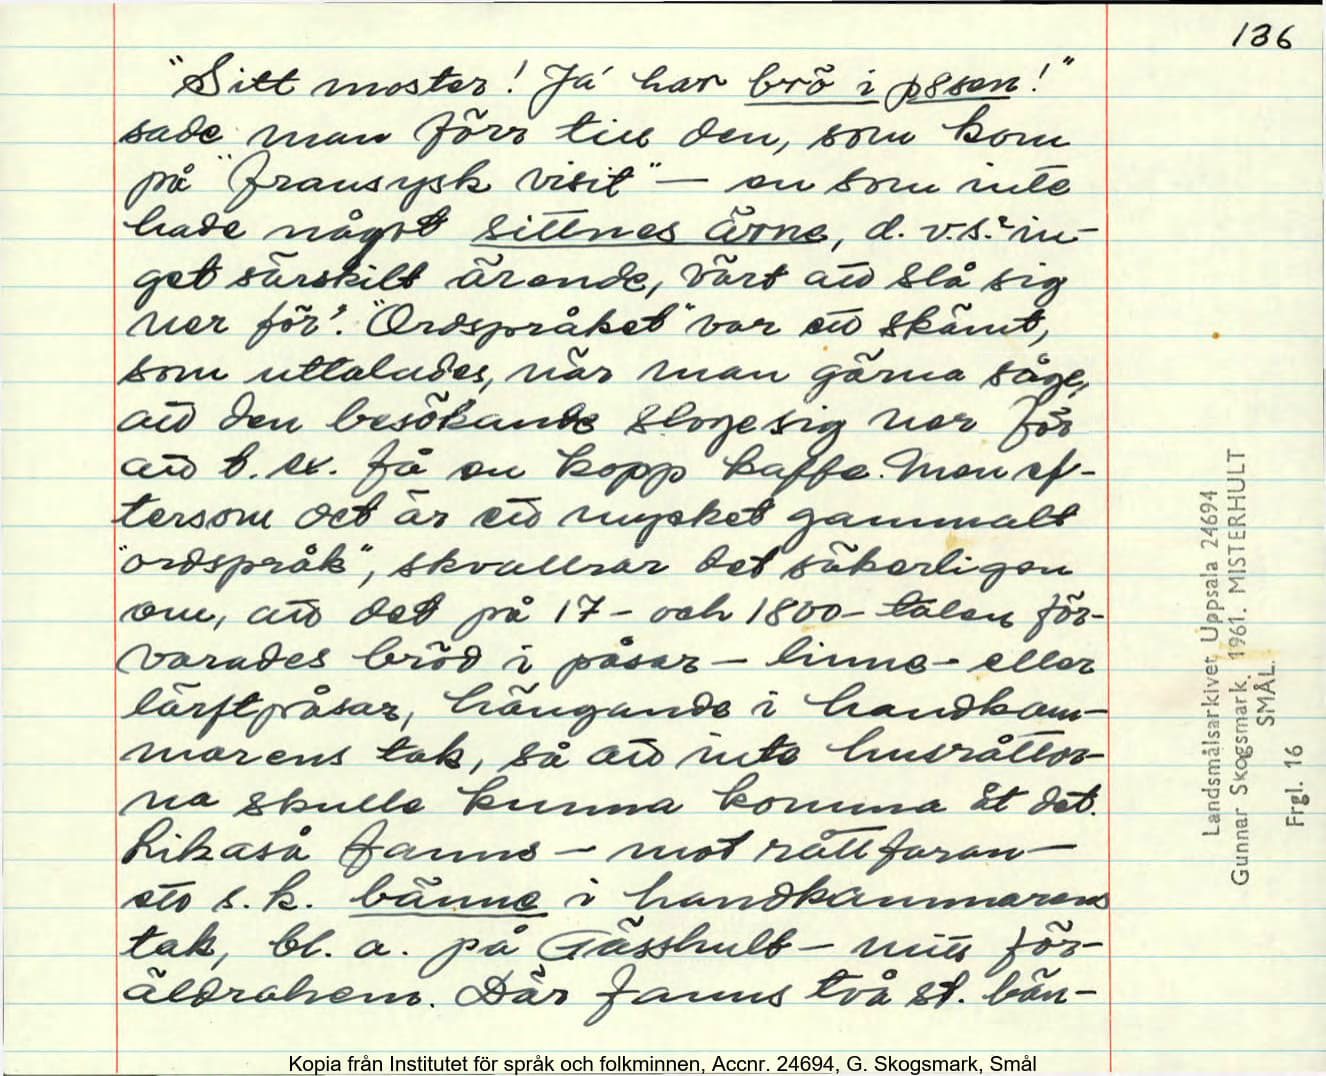 136
"Sitt moster! Ja' har brö i p8sen!"
sade man förr till den, som kom
på "fransysk visit" — en som inte
hade något sittnes ärne, d. v. s. 'in-
get särskilt ärende, värt att slå sig
ner för'. "Ordspråket" var ett skämt,
som uttalades, när man gärna såge,
att den besökande sloge sig ner för
att t. ex. få en kopp kaffe. Men ef-
tersom det är ett mycket gammalt
"ordspråk", skvallrar det säkerligen
om, att det på 17- och 1800-talen för-
varades bröd i påsar — linne- eller
lärftpåsar, hängande i handkam-
marens tak, så att inte husråttor-
na skulle kunna komma åt det.
Likaså fanns — mot råttfaran —
ett s. k. bänne i handkammarens
tak, bl. a. på Gässhult — mitt för-
äldrahem. Där fanns två st. bän-
Landsmålsarkivet Uppsala 24694
Gunnar Skogsmark. 1961. MISTERHULT
SMÅL.
Frgl. 16
Kopia från Institutet för språk och folkminnen, Accnr. 24694, G. Skogsmark, Smål